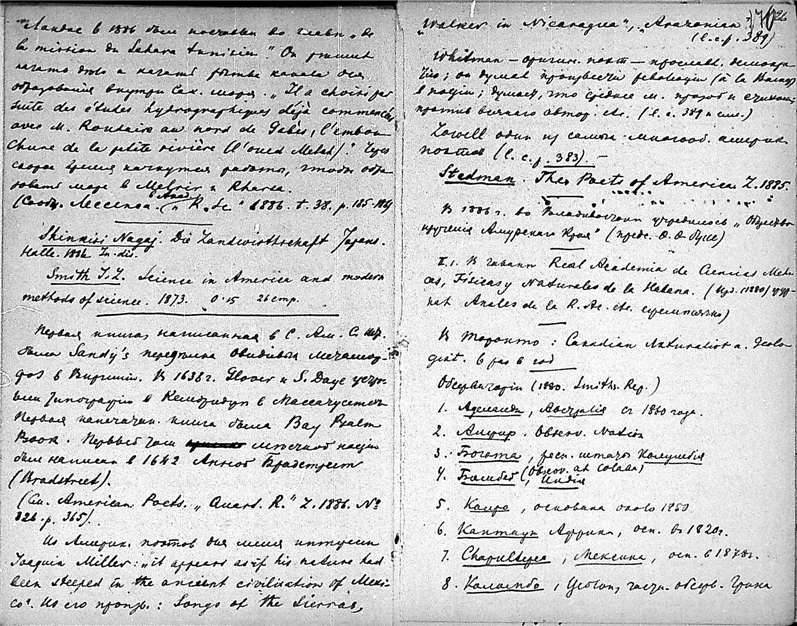 Landas в 1886 был поставлен во главе „de
la mission du Sahara tunisien“. Он решит
начато дело и начат рытье канала для
образования внутри Сах. моря. „Il a choisi par
suite des études hydrographiques déjà commencées
avec M. Roudaire au nord de Gabès, l'embou-
chure de la petite rivière (l'oued Melah).“ Через
скорое время начнутся работы, чтобы обра-
зовать море в Melrir и Rharsa.
1886. т. 38. p. 185-189
Shinkizi Nagai. Die Landwirthschaft Japans.
Halle. 1886. In. dis.
Smith J. L. Science in America and modern
methods of science. 1873. 0.15 26 стр.
Первая книга, написанная в С. Ам. С. Шт.
была Sandy's переводчика Овидиевых Метамор-
фоз в Виргинии. В 1638 г. Glover и S. Daye устро-
или типографию в Кембридже в Массачусетсе
Первая напечатан. книга была Bay Psalm
Book. Первый том местной поэзии
был написан в 1642 Анной Брадстрит
(Bradstreet).
(См. American Poets. „Quard. R.“ L. 1886. No
326. p. 365).
Из Америк. поэтов для меня интересен
Joaquin Miller: „it appears as if his nature had
been steeped in the ancient civilization of Mexi-
co“. Из его произв.: Songs of the Sierras,
26
„Walker in Nicaragua“, „Arazonian“
(l. c. p. 389)
Whitman — оригин. поэт — прославл. демокра-
тию; он думал произвести революцию (à la Wagner)
в поэзии; думает, что
против (l. c. 389 и сл.)
Lowell один из самых америк.
поэтов (l. c. p. 383). —
Stedman. The Poets of America L. 1885.
В 1886 г. во Владивостоке учредилось „Общество
изучения Амурского Края“ (предс. Ф. Ф. Буссе)
В Гаване Real Academia de Ciencias Medi-
cas, Físicas y Naturales de la Habana. (Изд. (1880)
nat Anales de la R. Ac. etc. ежемесячно)
В Торонто: Canadian Naturalist a. Geolo-
gist. 6 раз в год
Обсерватории (1880. Smiths. Rep.)
1. Аделаида, Australia с 1860 года.
2. Алжир. Observ. Nation
3. Богота, Колумбия
4. Бомбей (Observ. at Colaba), Индия
5. Каир, основана около 1850
6. Капштадт Африка, осн. в 1820 г.
7. Chapultepec, Мексика, осн. в 1878 г.
8. Коломбо, Ceylon, частн. обсерв. Грина